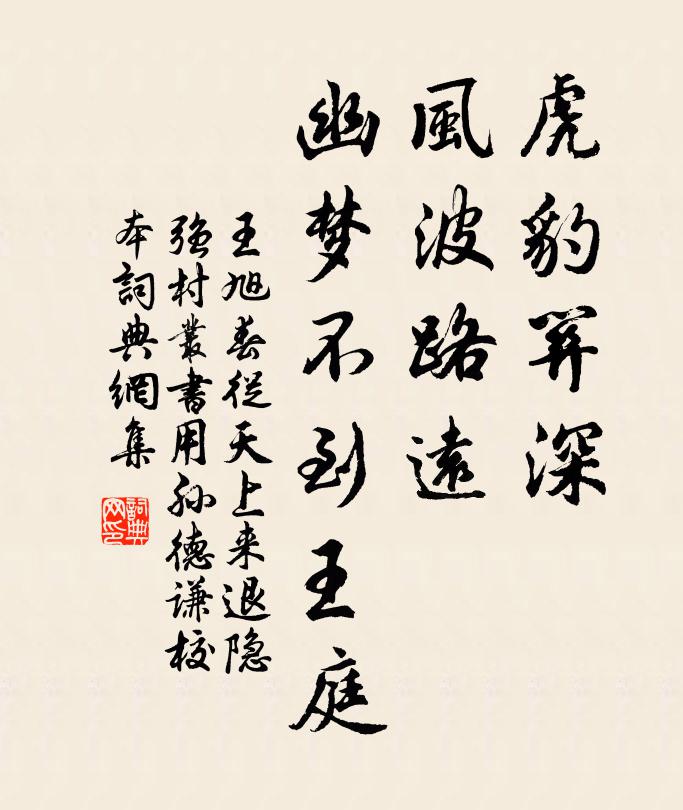 虎豹関深
風波路遠
幽梦不到王庭
王旭春從天上来退隐
强村叢書用孙德谦校
本詞典網集
詞典网印